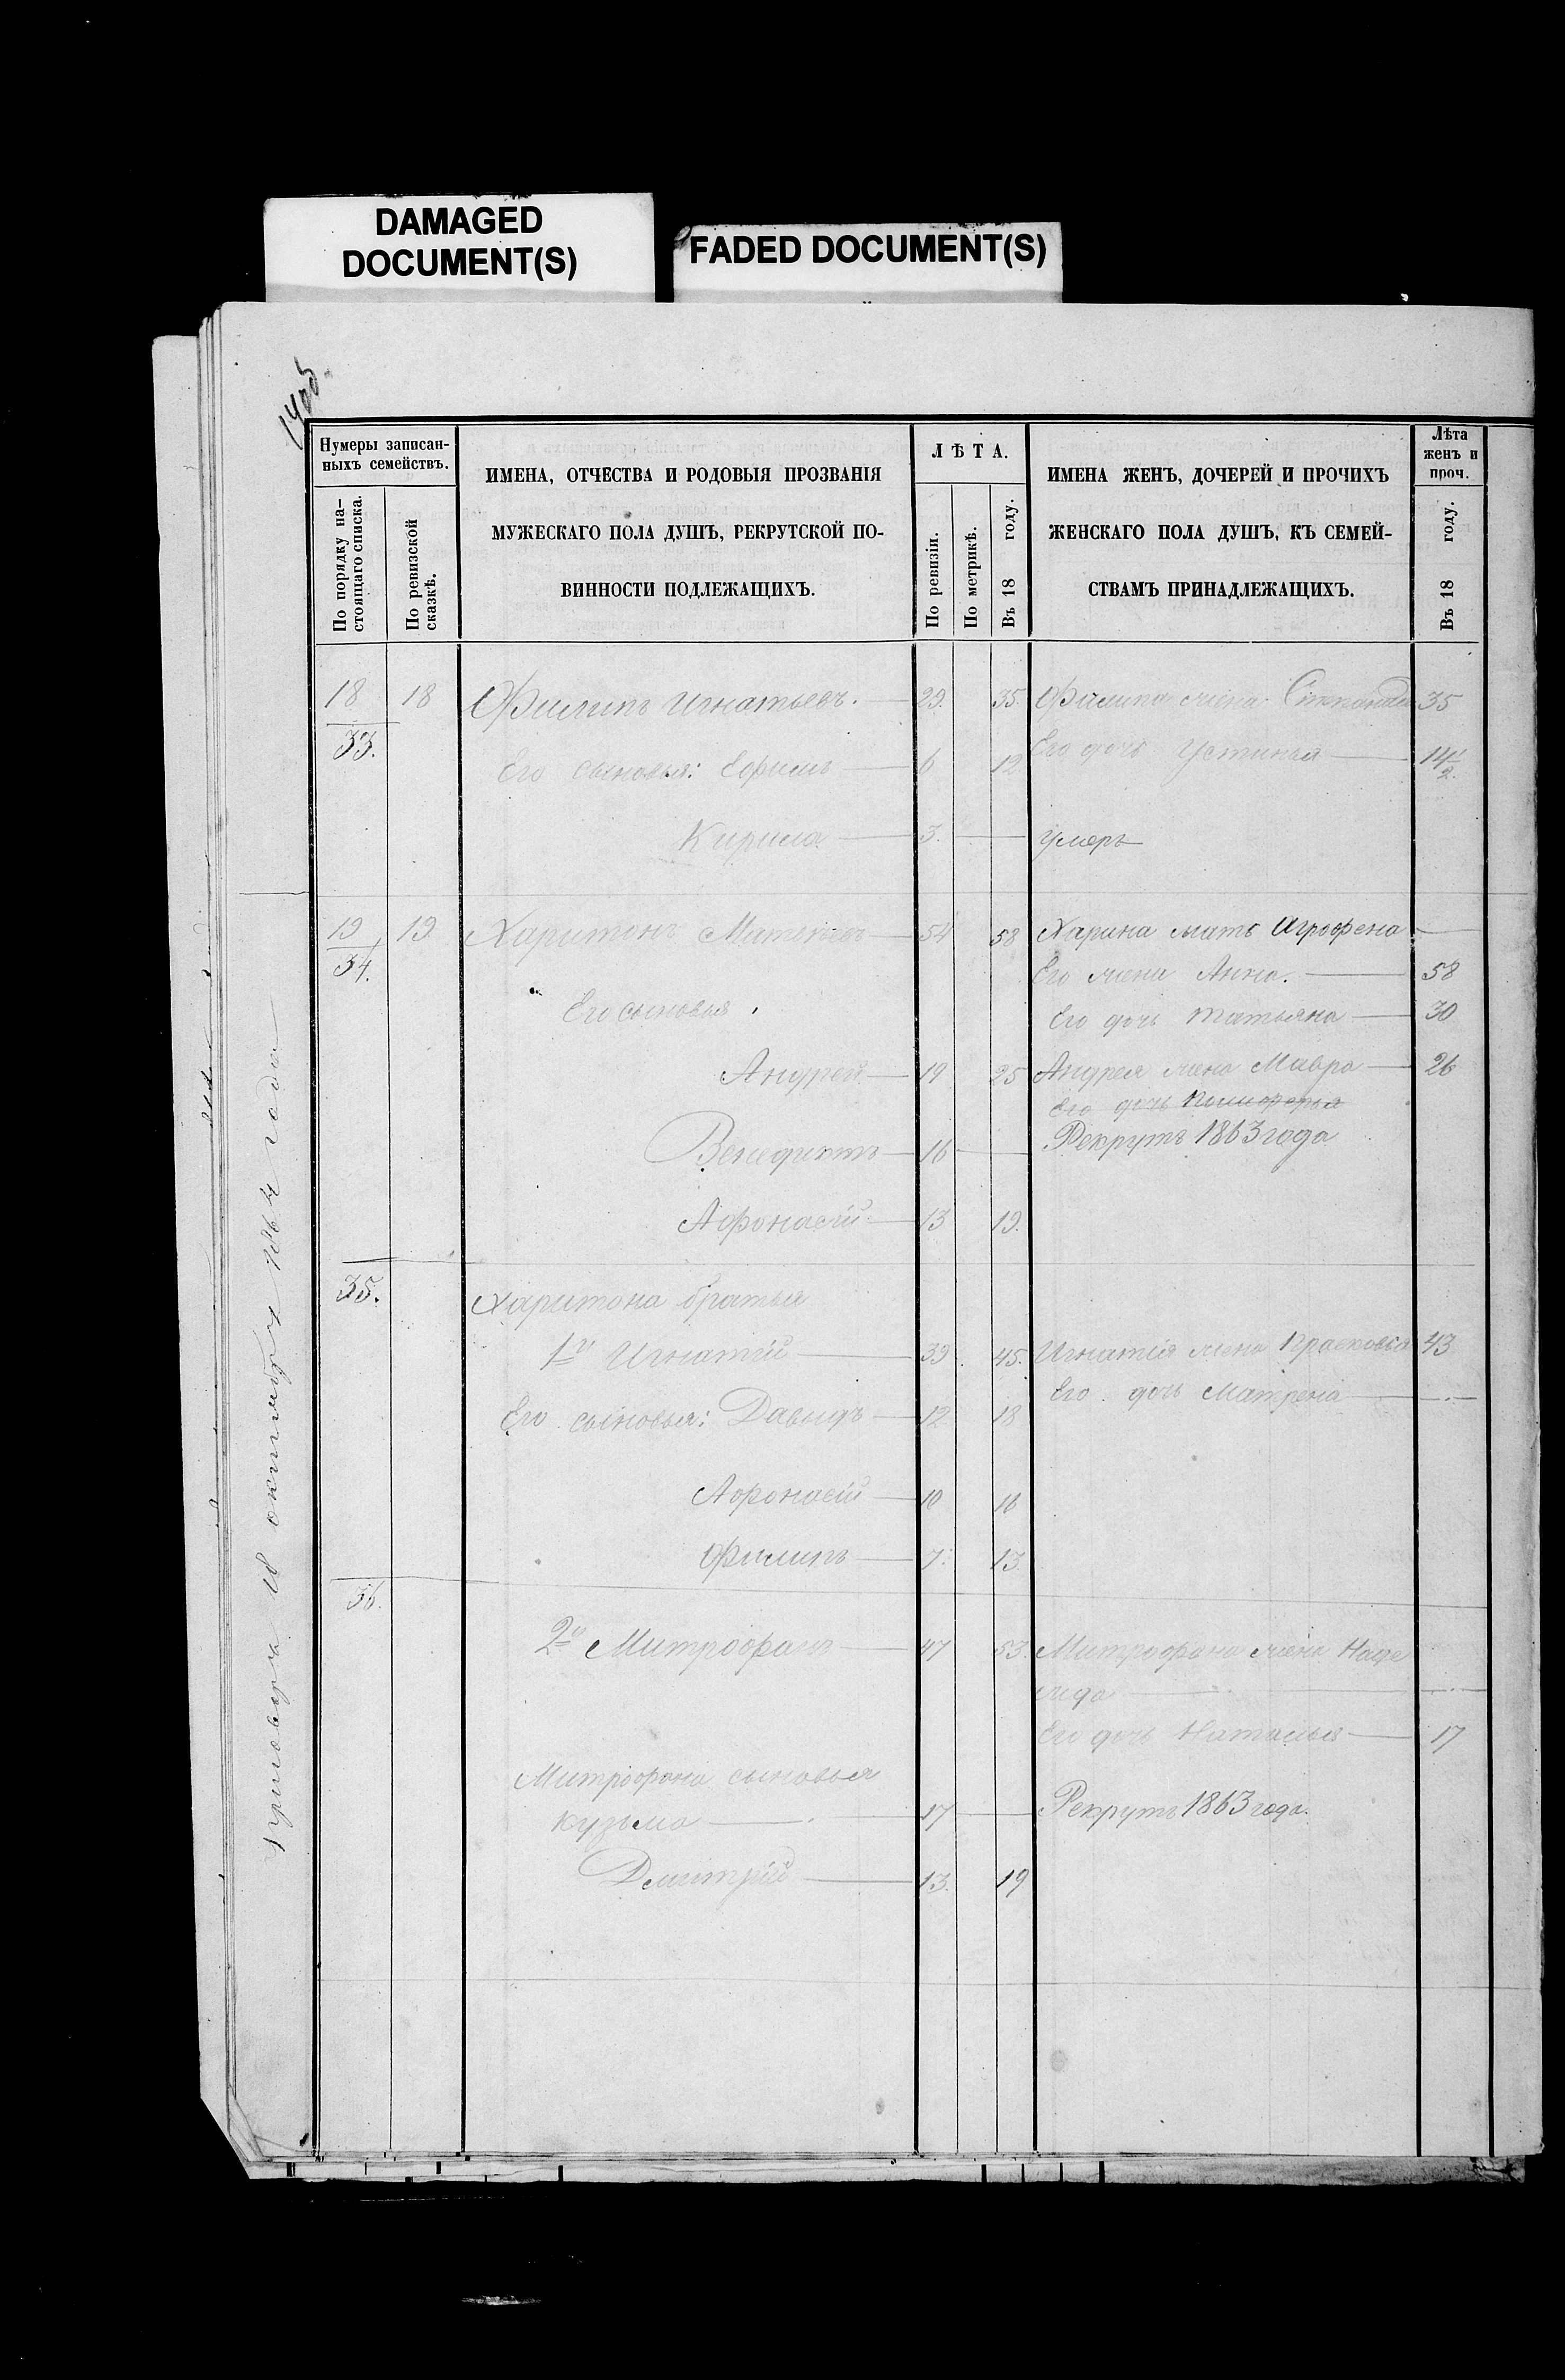 DAMAGED
DOCUMENT(S)
FADED DOCUMENT(S)
14об
Нумеры записан-
ныхъ семействъ.
По порядку на-
стоящаго списка.
По ревизской
сказкѣ.
ИМЕНА, ОТЧЕСТВА И РОДОВЫЯ ПРОЗВАНІЯ
МУЖЕСКАГО ПОЛА ДУШЪ, РЕКРУТСКОЙ ПО-
ВИННОСТИ ПОДЛЕЖАЩИХЪ.
ЛѢТА.
По ревизіи.
По метрикѣ.
Въ 18 году.
ИМЕНА ЖЕНЪ, ДОЧЕРЕЙ И ПРОЧИХЪ
ЖЕНСКАГО ПОЛА ДУШЪ, КЪ СЕМЕЙ-
СТВАМЪ ПРИНАДЛЕЖАЩИХЪ.
Лѣта
женъ и
проч.
Въ 18 году.
18 18 Филипъ Игнатьевъ. 29. 35. Филипа жена 35
33.
Его сыновья: Ефимъ 6 12 Его дочь Устинья 14 1/2.
Кирила 3. умеръ
19 19 Харитонъ Матвѣевъ 54 58 Харина мать Агрофена
34.
Его жена Анна. 58
Его сыновья.
Его дочь Татьяна 30
Андрей 19 25 Андрея жена Мавра 26
Его дочь
Венедиктъ 16 Рекрутъ 1863 года
Афонасій 13 19.
35. Харитона братья
1й Игнатій 39. 45. Игнатія жена Прасковья 43
Его дочь Матрена
Его сыновья: Давыдъ 12 18
Афонасій 10 16
Филипъ 7. 13
36.
2й Митрофанъ 47 53. Митрофана жена Наде
жда
Его дочь Наталья 17
Митрофана сыновья
Кузьма 17 Рекрутъ 1863 года.
Дмитрій 13. 19
приговора 18 октября 1864 года